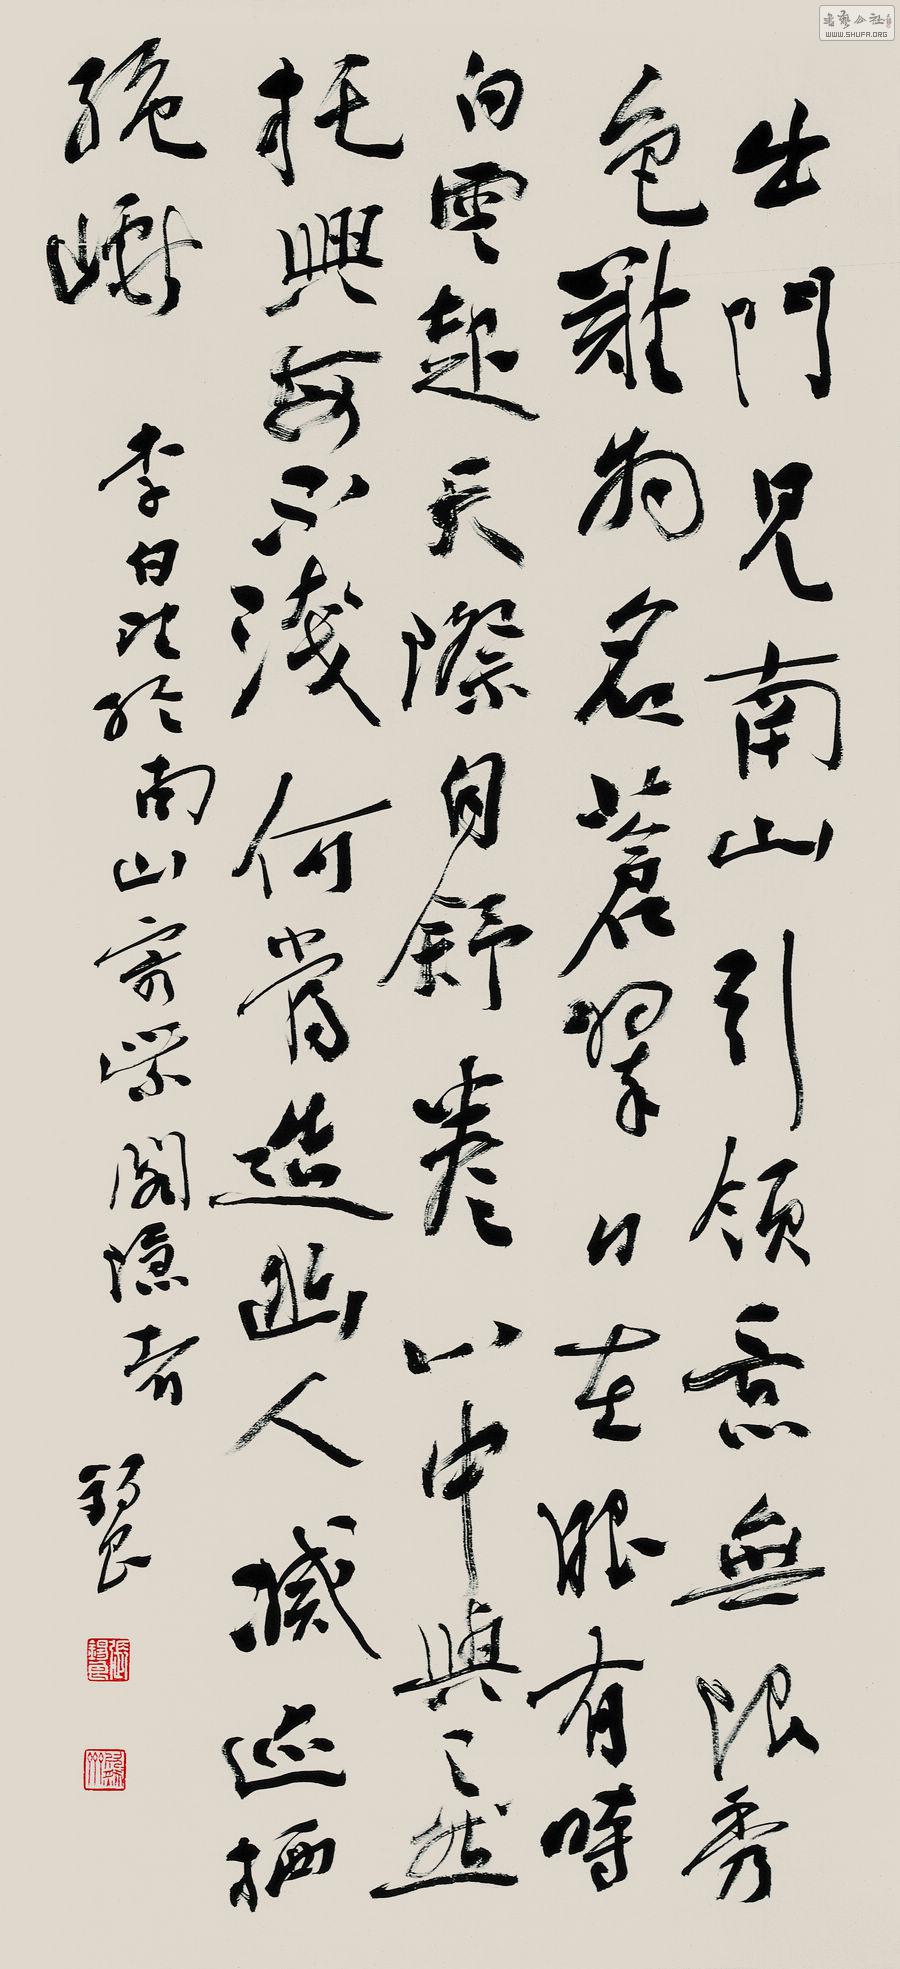 出門見南山引領意無限秀
色難為名蒼翠日在眼有時
白雲起天際自舒卷心中與之然
托興每不淺何當造幽人滅迹栖
絕巘
李白望終南山寄紫閣隱者 錫良
張錫良
WWW.SHUFA.ORG